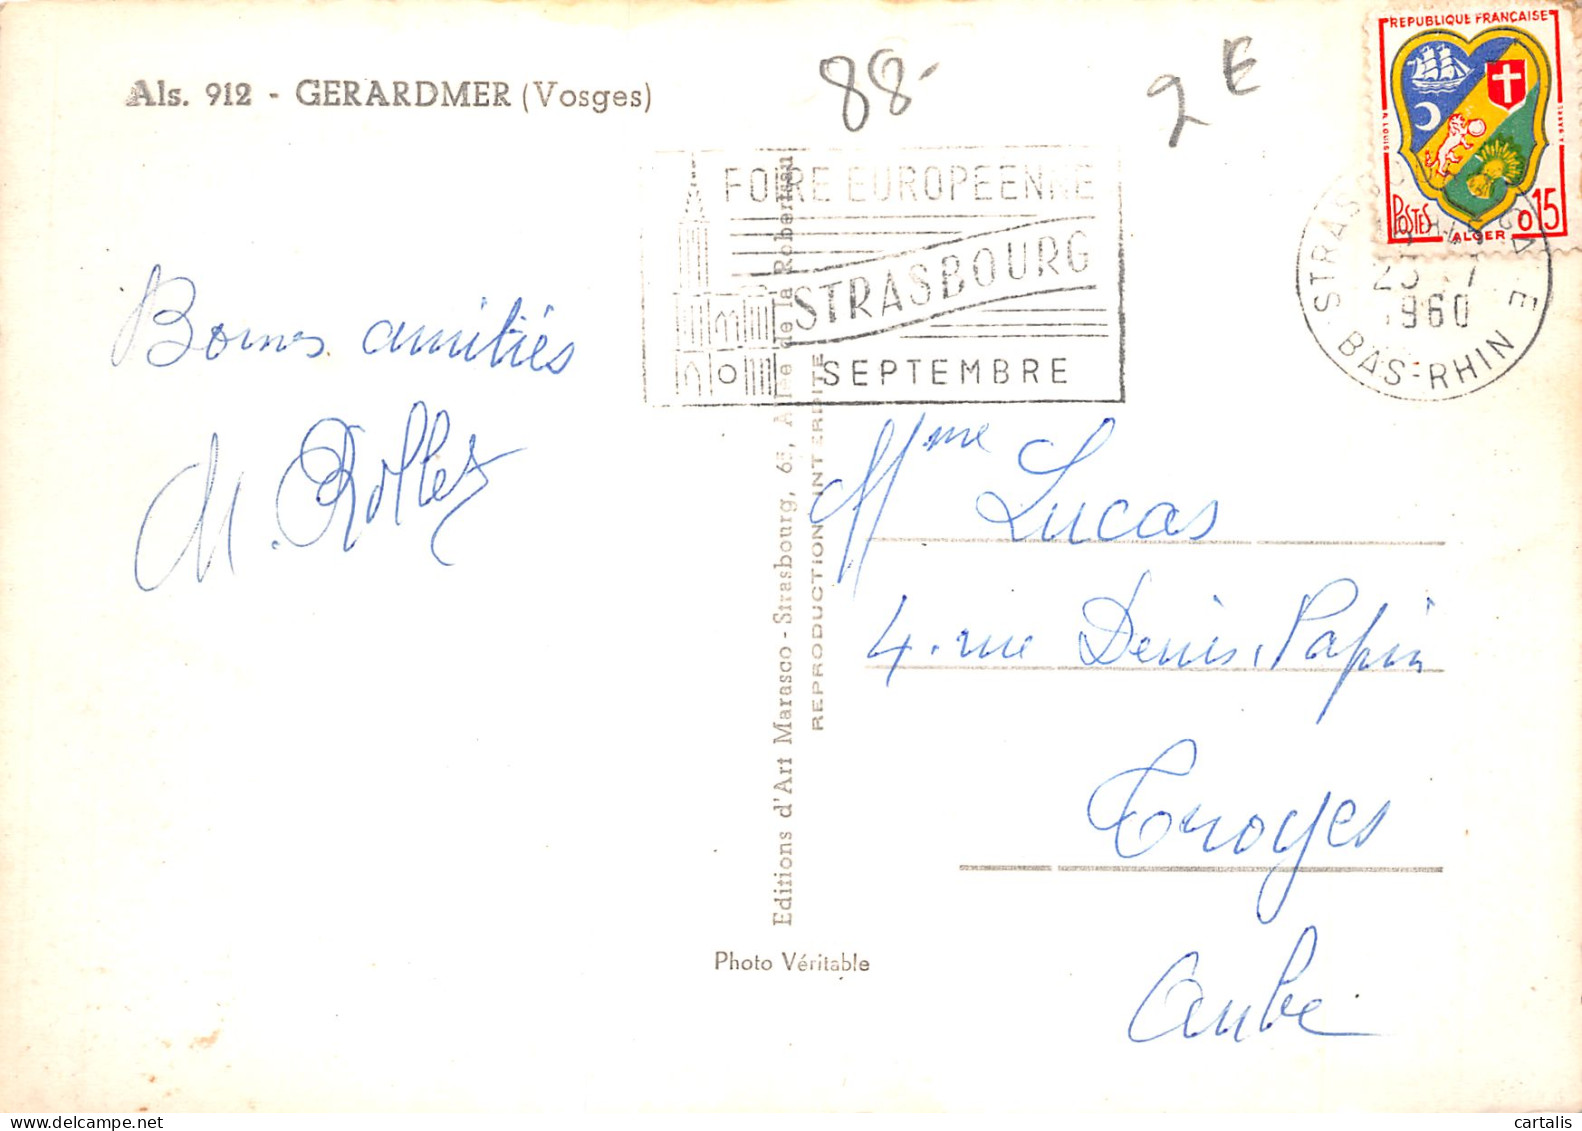 Als. 912 - GERARDMER (Vosges)
88-
2E
REPUBLIQUE FRANÇAISE
POSTES
ALGER
0,15
FOIRE EUROPEENNE
STRASBOURG
SEPTEMBRE
STRASBOURG GARE
1960
BAS-RHIN
Bonnes amitiés
Mme Lucas
4. rue Denis Papin
Troyes
Aube
Editions d'Art Marasco - Strasbourg, 65, Allée de la Robertsau
REPRODUCTION INTERDITE
Photo Véritable
cartalis